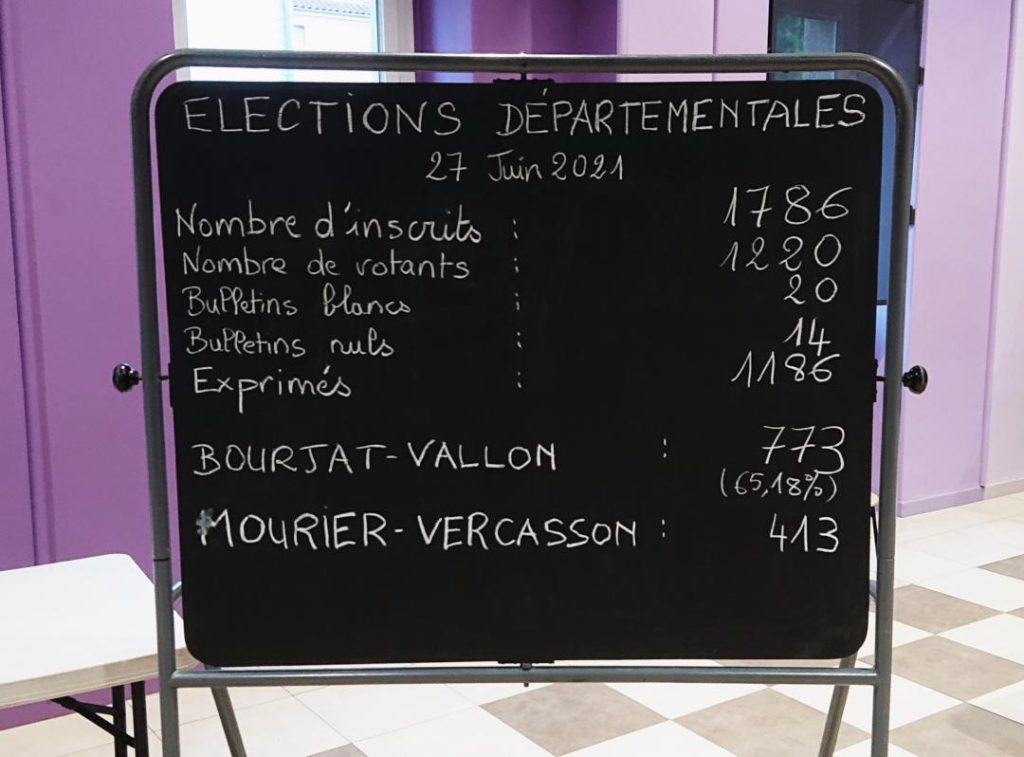 ELECTIONS DÉPARTEMENTALES
27 Juin 2021
Nombre d'inscrits : 1786
Nombre de votants : 1220
Bulletins blancs : 20
Bulletins nuls : 14
Exprimés : 1186
BOURJAT-VALLON : 773
(65,18%)
MOURIER-VERCASSON : 413